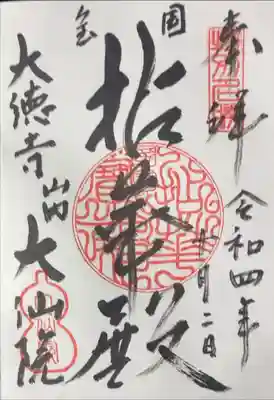 奉拝
令和四年
十一月二日
国宝
拈華殿
大徳寺山内
大仙院